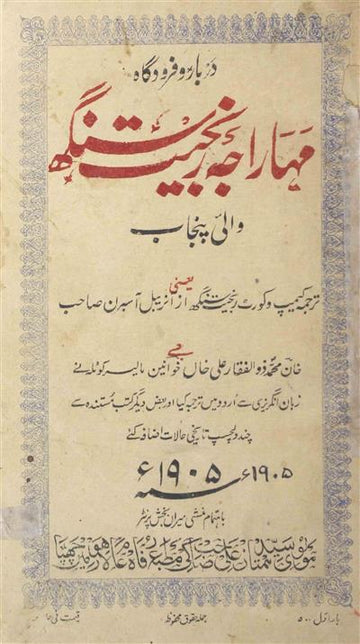 دربار و فرودگاہ
مہاراجہ رنجیت سنگھ
والئ پنجاب
یعنی
ترجمہ کیمپ و کورٹ رنجیت سنگھ از آنریبل آسبرن صاحب
جسے
خان محمد ذوالفقار علی خاں خوانین مالیر کوٹلہ نے
زبان انگریزی سے اردو میں ترجمہ کیا اور بعض دیگر کتب مستندہ سے
چند دلچسپ تاریخی حالات اضافہ کئے
۱۹۰۵ء ۱۹۰۵ء
باہتمام منشی میراں بخش پرنٹر
مولوی سید ممتاز علی صاحب کی مطبع رفاہ عام لاہور میں چھپا
بار اول ۵۰۰ جملہ حقوق محفوظ قیمت فی جلد